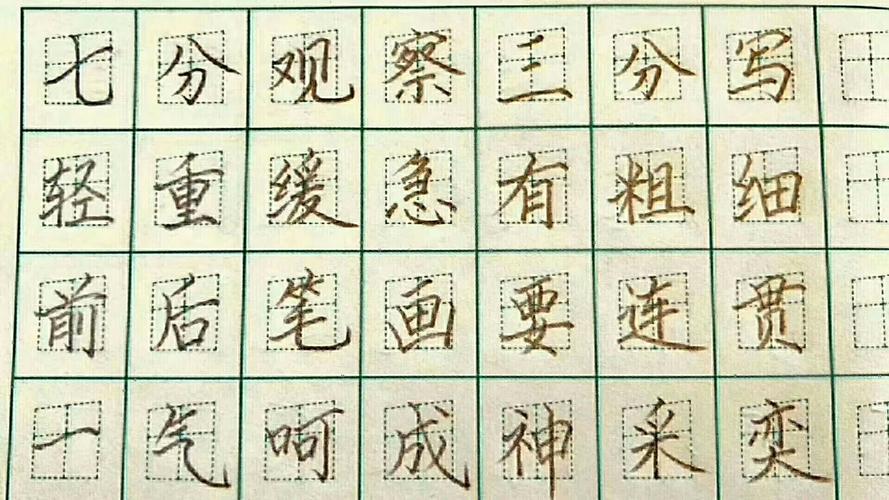 七分观察三分写
轻重缓急有粗细
前后笔画要连贯
一气呵成神采奕